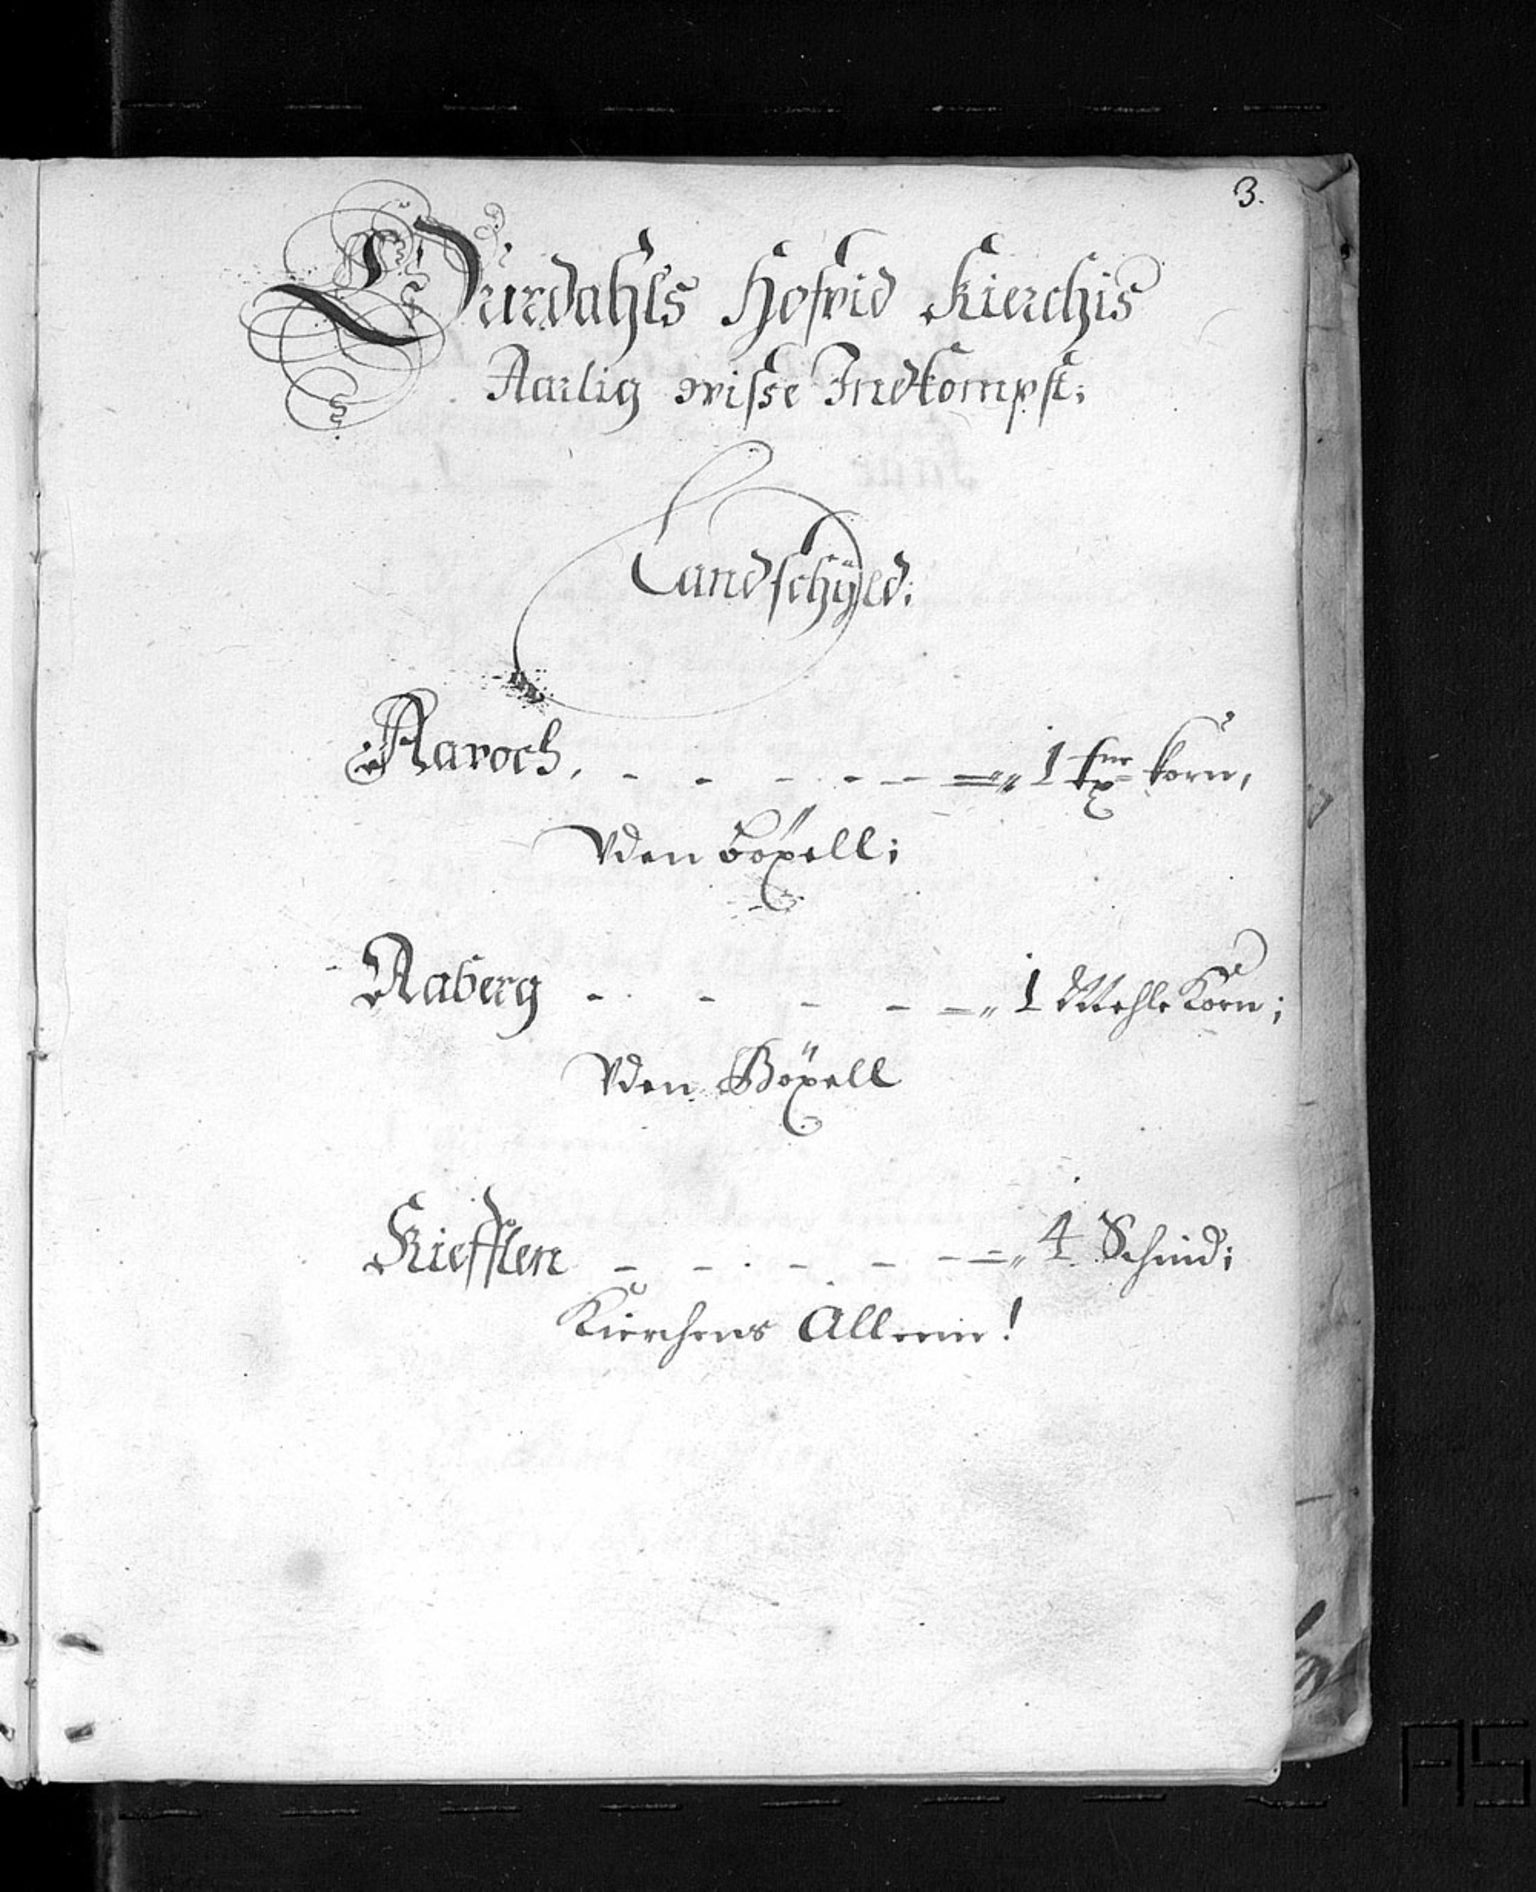 3.
Hurdahls Hofvid Kierchis
Aarlig visse Indkompst;
Landschÿld;
Aaroch, 1 korn,
Vden böxell;
Aaberg 1 Mehle Korn;
Vden Böxell
Kiefflen 4 Schind;
Kierchens Alleene!